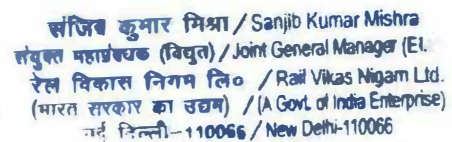 संजिब कुमार मिश्रा / Sanjib Kumar Mishra
संयुक्त महाप्रबंधक (विद्युत) / Joint General Manager (El.
रेल विकास निगम लि० / Rail Vikas Nigam Ltd.
(भारत सरकार का उद्यम) / (A Govt. of India Enterprise)
नई दिल्ली-110066 / New Delhi-110066